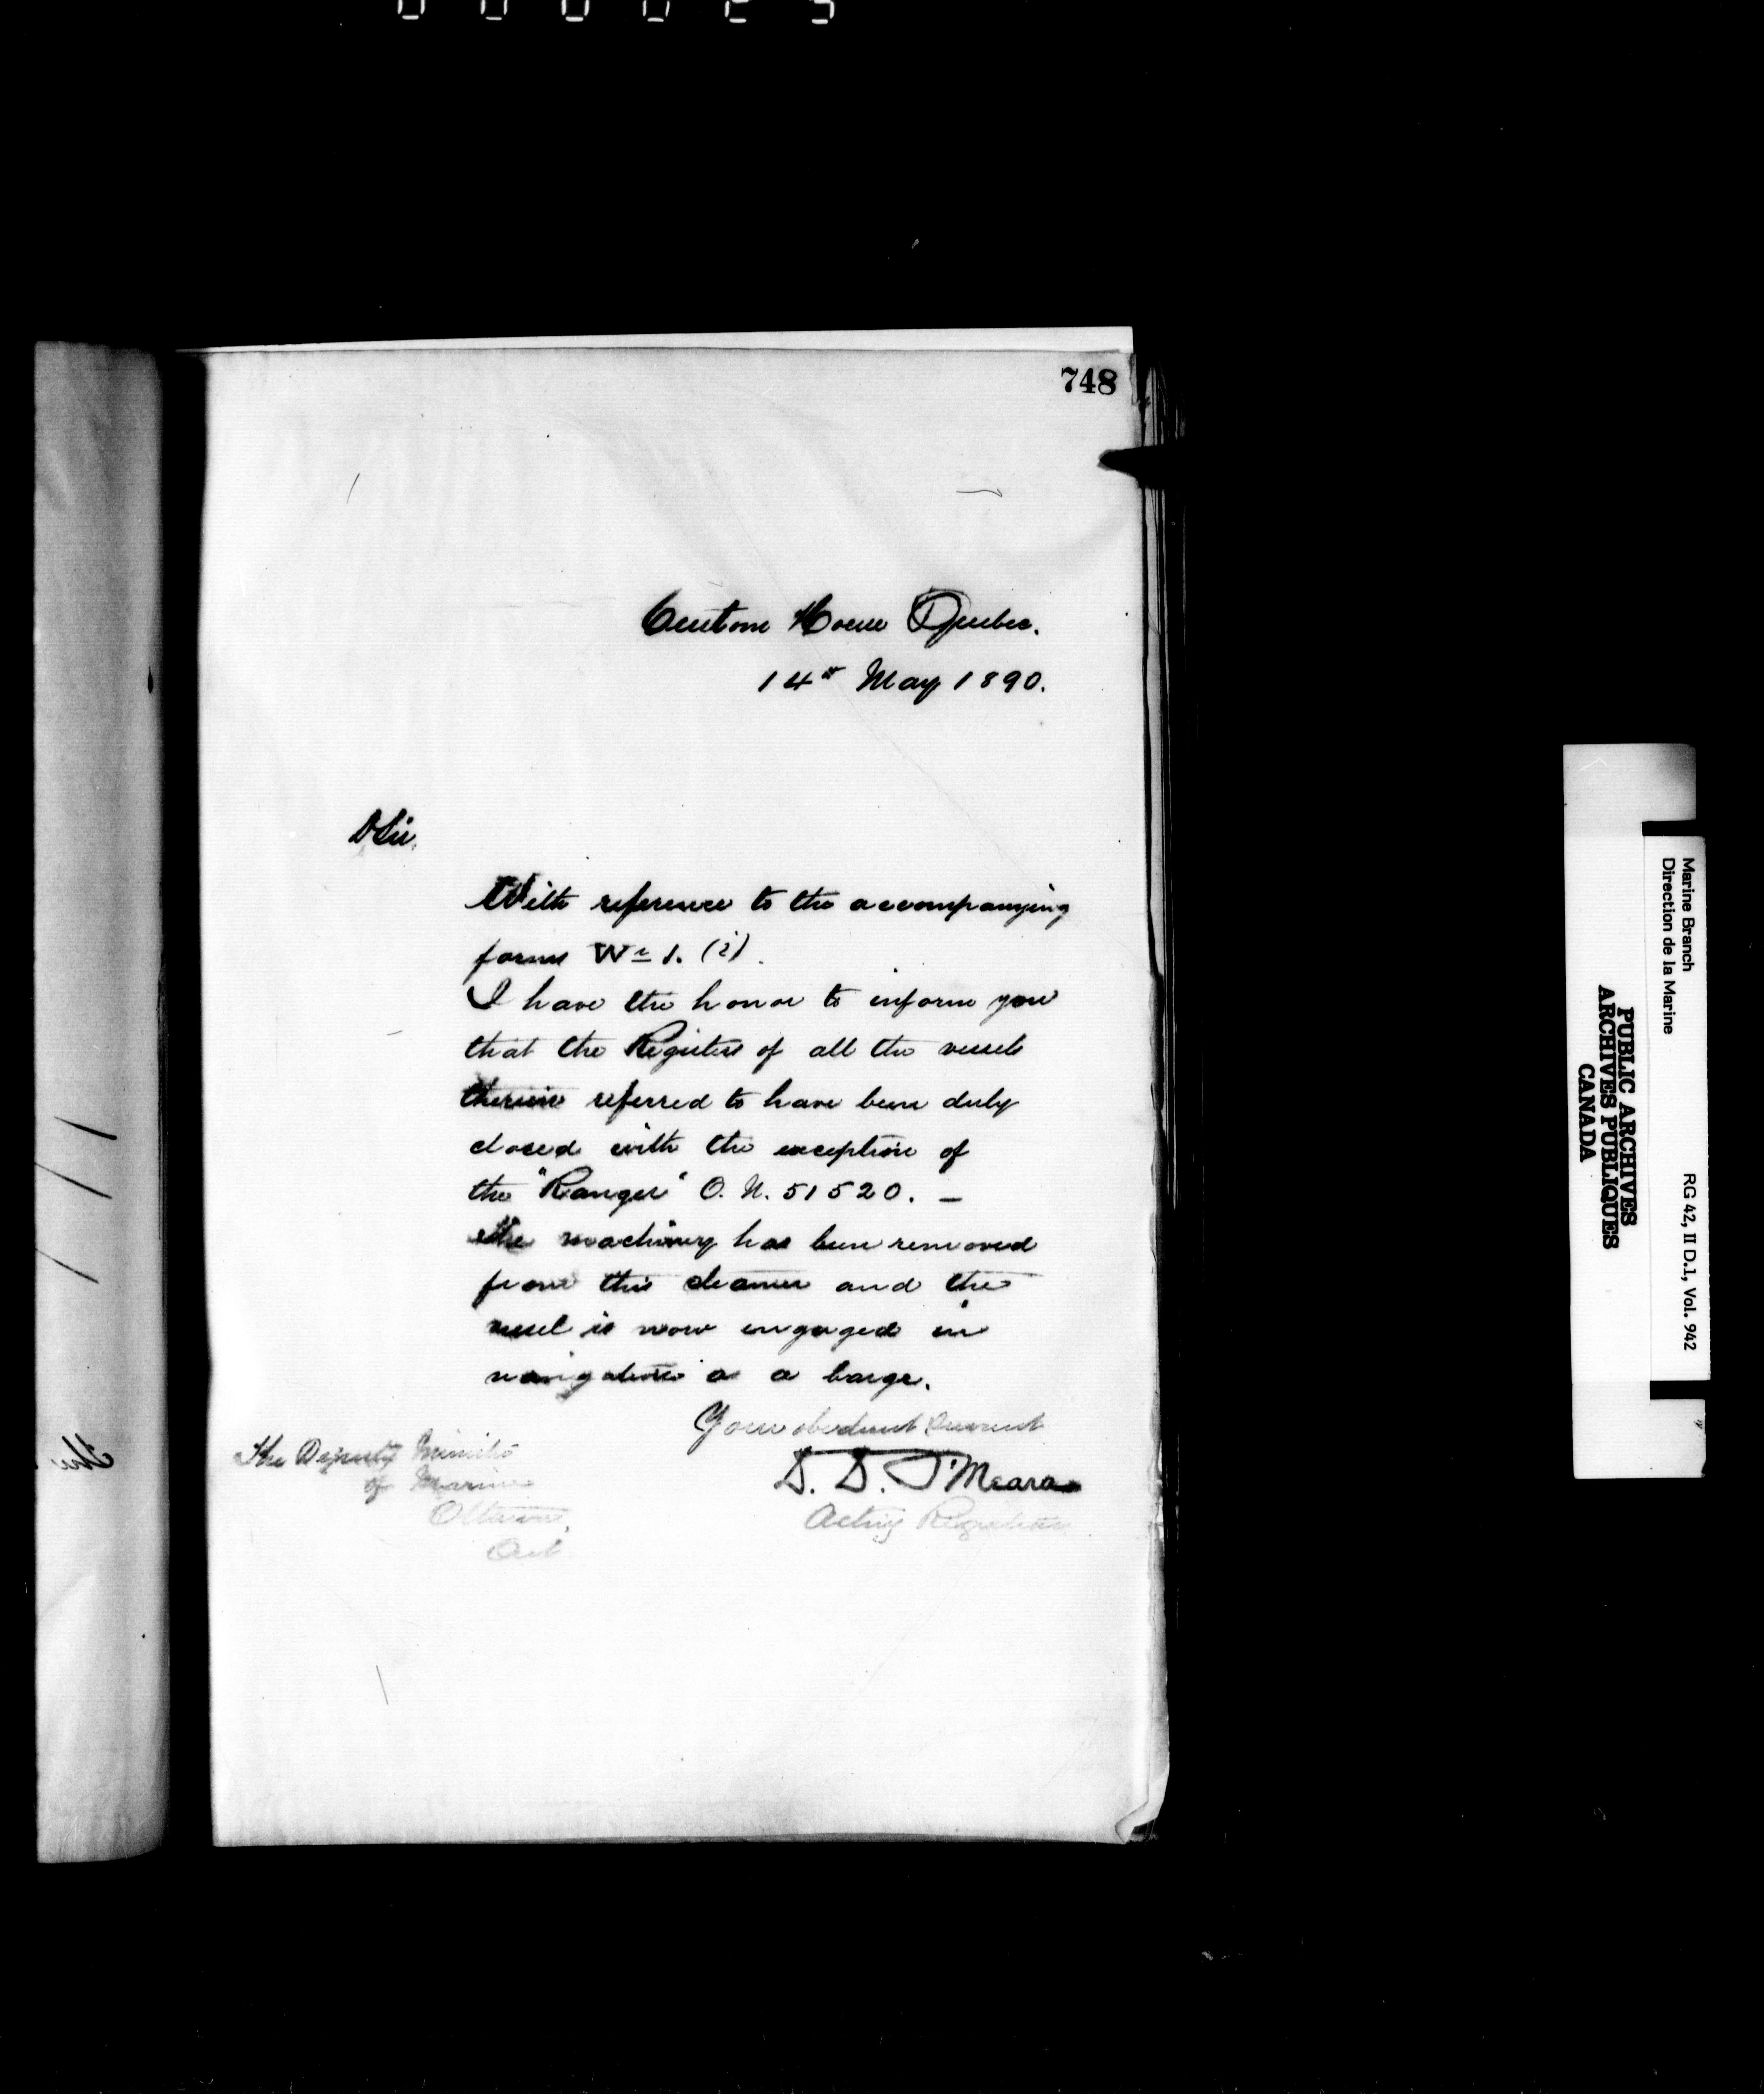 748
Custom House Quebec.
14th May 1890.
D Sir,
With reference to the accompanying
forms Wr 1. (i).
I have the honor to inform you
that the Registers of all the vessels
therein referred to have been duly
closed with the exception of
the "Ranger" O. N. 51520. —
The machinery has been removed
from this steamer and the
vessel is now engaged in
navigation as a barge.
Your obedient Servant
D. D. O'Meara
Acting Registrar
The Deputy Minister
of Marine
Ottawa,
Ont
Marine Branch
Direction de la Marine
RG 42, II D.1, Vol. 942
PUBLIC ARCHIVES
ARCHIVES PUBLIQUES
CANADA